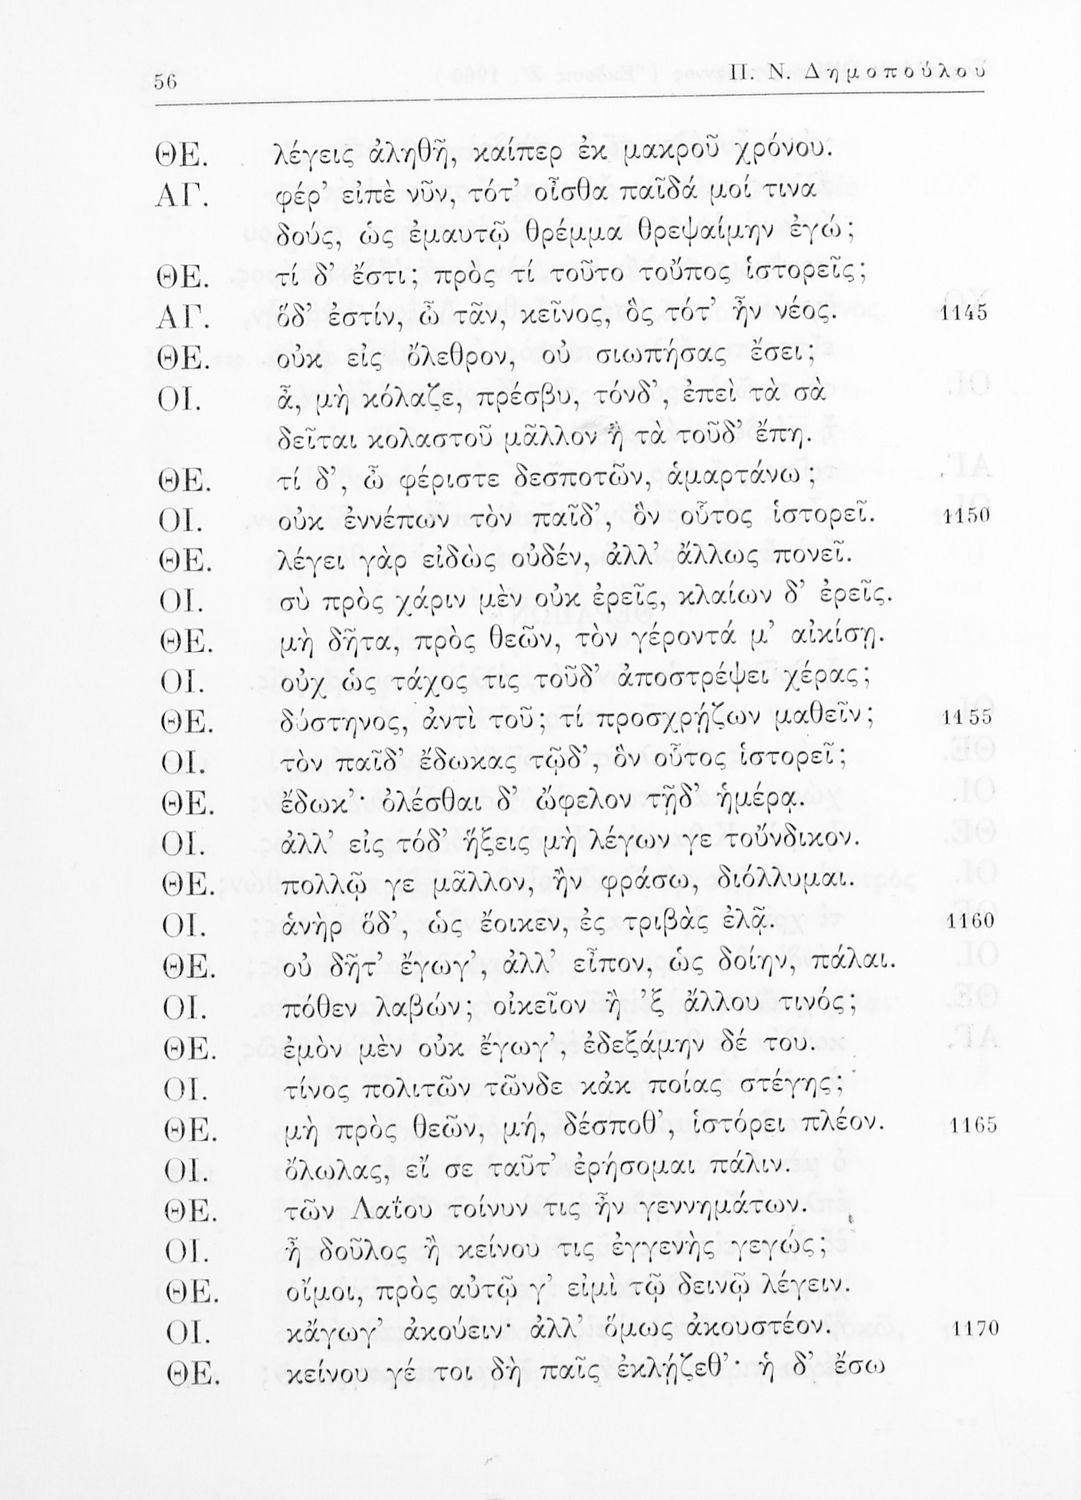 56 Π. Ν. Δημοπούλου
ΘΕ. λέγεις ἀληθῆ, καίπερ ἐκ μακροῦ χρόνου.
ΑΓ. φέρ' εἰπὲ νῦν, τότ' οἶσθα παῖδά μοί τινα
δούς, ὡς ἐμαυτῷ θρέμμα θρεψαίμην ἐγώ;
ΘΕ. τί δ' ἔστι; πρὸς τί τοῦτο τοὔπος ἱστορεῖς;
ΑΓ. ὅδ' ἐστίν, ὦ τᾶν, κεῖνος, ὃς τότ' ἦν νέος. 1145
ΘΕ. οὐκ εἰς ὄλεθρον, οὐ σιωπήσας ἔσει;
ΟΙ. ἆ, μὴ κόλαζε, πρέσβυ, τόνδ', ἐπεὶ τὰ σὰ
δεῖται κολαστοῦ μᾶλλον ἢ τὰ τοῦδ' ἔπη.
ΘΕ. τί δ', ὦ φέριστε δεσποτῶν, ἁμαρτάνω;
ΟΙ. οὐκ ἐννέπων τὸν παῖδ', ὃν οὗτος ἱστορεῖ. 1150
ΘΕ. λέγει γὰρ εἰδὼς οὐδέν, ἀλλ' ἄλλως πονεῖ.
ΟΙ. σὺ πρὸς χάριν μὲν οὐκ ἐρεῖς, κλαίων δ' ἐρεῖς.
ΘΕ. μὴ δῆτα, πρὸς θεῶν, τὸν γέροντά μ' αἰκίσῃ.
ΟΙ. οὐχ ὡς τάχος τις τοῦδ' ἀποστρέψει χέρας;
ΘΕ. δύστηνος, ἀντὶ τοῦ; τί προσχρῄζων μαθεῖν; 1155
ΟΙ. τὸν παῖδ' ἔδωκας τῷδ', ὃν οὗτος ἱστορεῖ;
ΘΕ. ἔδωκ'· ὀλέσθαι δ' ὤφελον τῇδ' ἡμέρᾳ.
ΟΙ. ἀλλ' εἰς τόδ' ἥξεις μὴ λέγων γε τοὔνδικον.
ΘΕ. πολλῷ γε μᾶλλον, ἢν φράσω, διόλλυμαι.
ΟΙ. ἁνὴρ ὅδ', ὡς ἔοικεν, ἐς τριβὰς ἐλᾷ. 1160
ΘΕ. οὐ δῆτ' ἔγωγ', ἀλλ' εἶπον, ὡς δοίην, πάλαι.
ΟΙ. πόθεν λαβών; οἰκεῖον ἢ 'ξ ἄλλου τινός;
ΘΕ. ἐμὸν μὲν οὐκ ἔγωγ', ἐδεξάμην δέ του.
ΟΙ. τίνος πολιτῶν τῶνδε κἀκ ποίας στέγης;
ΘΕ. μὴ πρὸς θεῶν, μή, δέσποθ', ἱστόρει πλέον. 1165
ΟΙ. ὄλωλας, εἴ σε ταῦτ' ἐρήσομαι πάλιν.
ΘΕ. τῶν Λαΐου τοίνυν τις ἦν γεννημάτων.
ΟΙ. ἦ δοῦλος ἢ κείνου τις ἐγγενὴς γεγώς;
ΘΕ. οἴμοι, πρὸς αὐτῷ γ' εἰμὶ τῷ δεινῷ λέγειν.
ΟΙ. κἄγωγ' ἀκούειν· ἀλλ' ὅμως ἀκουστέον. 1170
ΘΕ. κείνου γέ τοι δὴ παῖς ἐκλῄζεθ'· ἡ δ' ἔσω